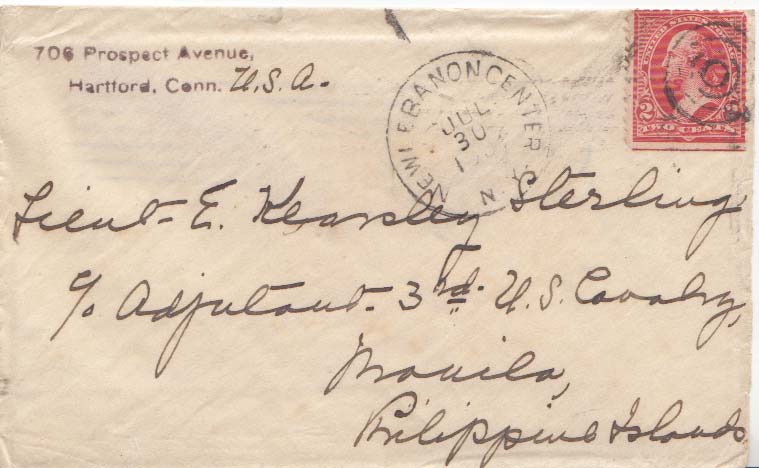 706 Prospect Avenue,
Hartford, Conn. U.S.A.
NEW LEBANON CENTER N.Y.
JUL
30
UNITED STATES OF
2
TWO CENTS
Lieut. E. Kearsley Sterling
c/o Adjutant. 3rd. U.S. Cavalry,
Manila,
Philippine Islands